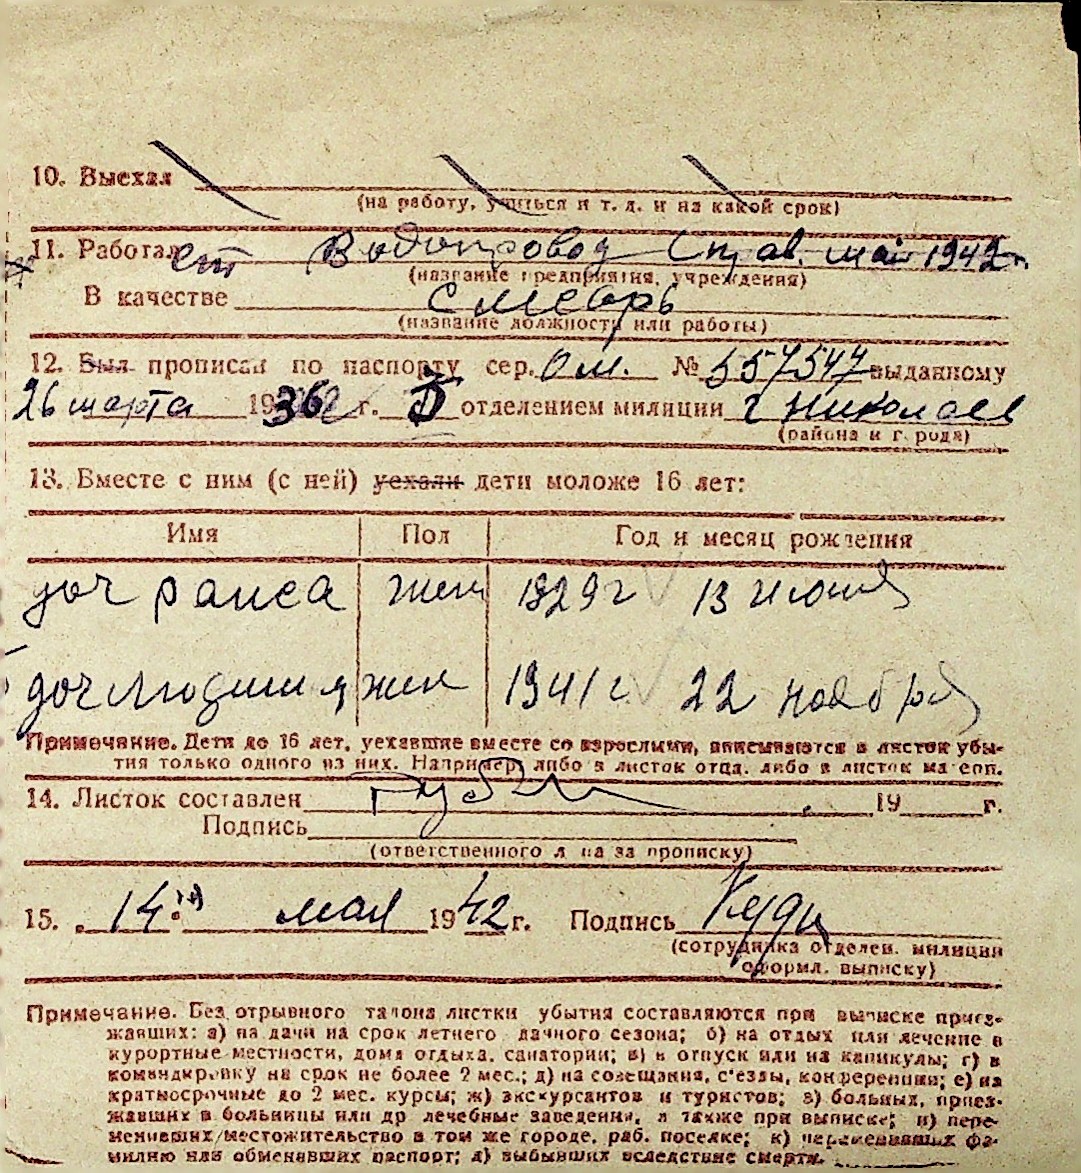 10. Выехал
(на работу, учиться и т. д. и на какой срок)
11. Работал ст Водопровод Справ. май 1942г.
(название предприятия, учреждения)
В качестве слесарь
(название должности или работы)
12. Был прописан по паспорту сер. Ом. № 557547 выданному
26 марта 1936 г. 5 отделением милиции г Николаев
(района и города)
13. Вместе с ним (с ней) уехали дети моложе 16 лет:
Имя Пол Год и месяц рождения
доч раиса жен 1929 г 13 июня
доч людмила жен 1941 г 22 ноября
Примечание. Дети до 16 лет, уехавшие вместе со взрослыми, вписываются в листок убы-
тия только одного из них. Например, либо в листок отца, либо в листок матери.
14. Листок составлен 19 г.
Подпись
(ответственного лица за прописку)
15. 14 го мая 1942 г. Подпись
(сотрудника отделен. милиции
оформл. выписку)
Примечание. Без отрывного талона листки убытия составляются при выписке приез-
жавших: а) на дачи на срок летнего дачного сезона; б) на отдых или лечение в
курортные местности, дома отдыха, санатории; в) в отпуск или на каникулы; г) в
командировку на срок не более 2 мес.; д) на совещания, с'езды, конференции; е) на
краткосрочные до 2 мес. курсы; ж) экскурсантов и туристов; з) больных, приез-
жавших в больницы или др лечебные заведения, а также при выписке; и) пере-
менивших местожительство в том же городе, раб. поселке; к) переменивших фа-
милию или обменявших паспорт; л) выбывших вследствие смерти.